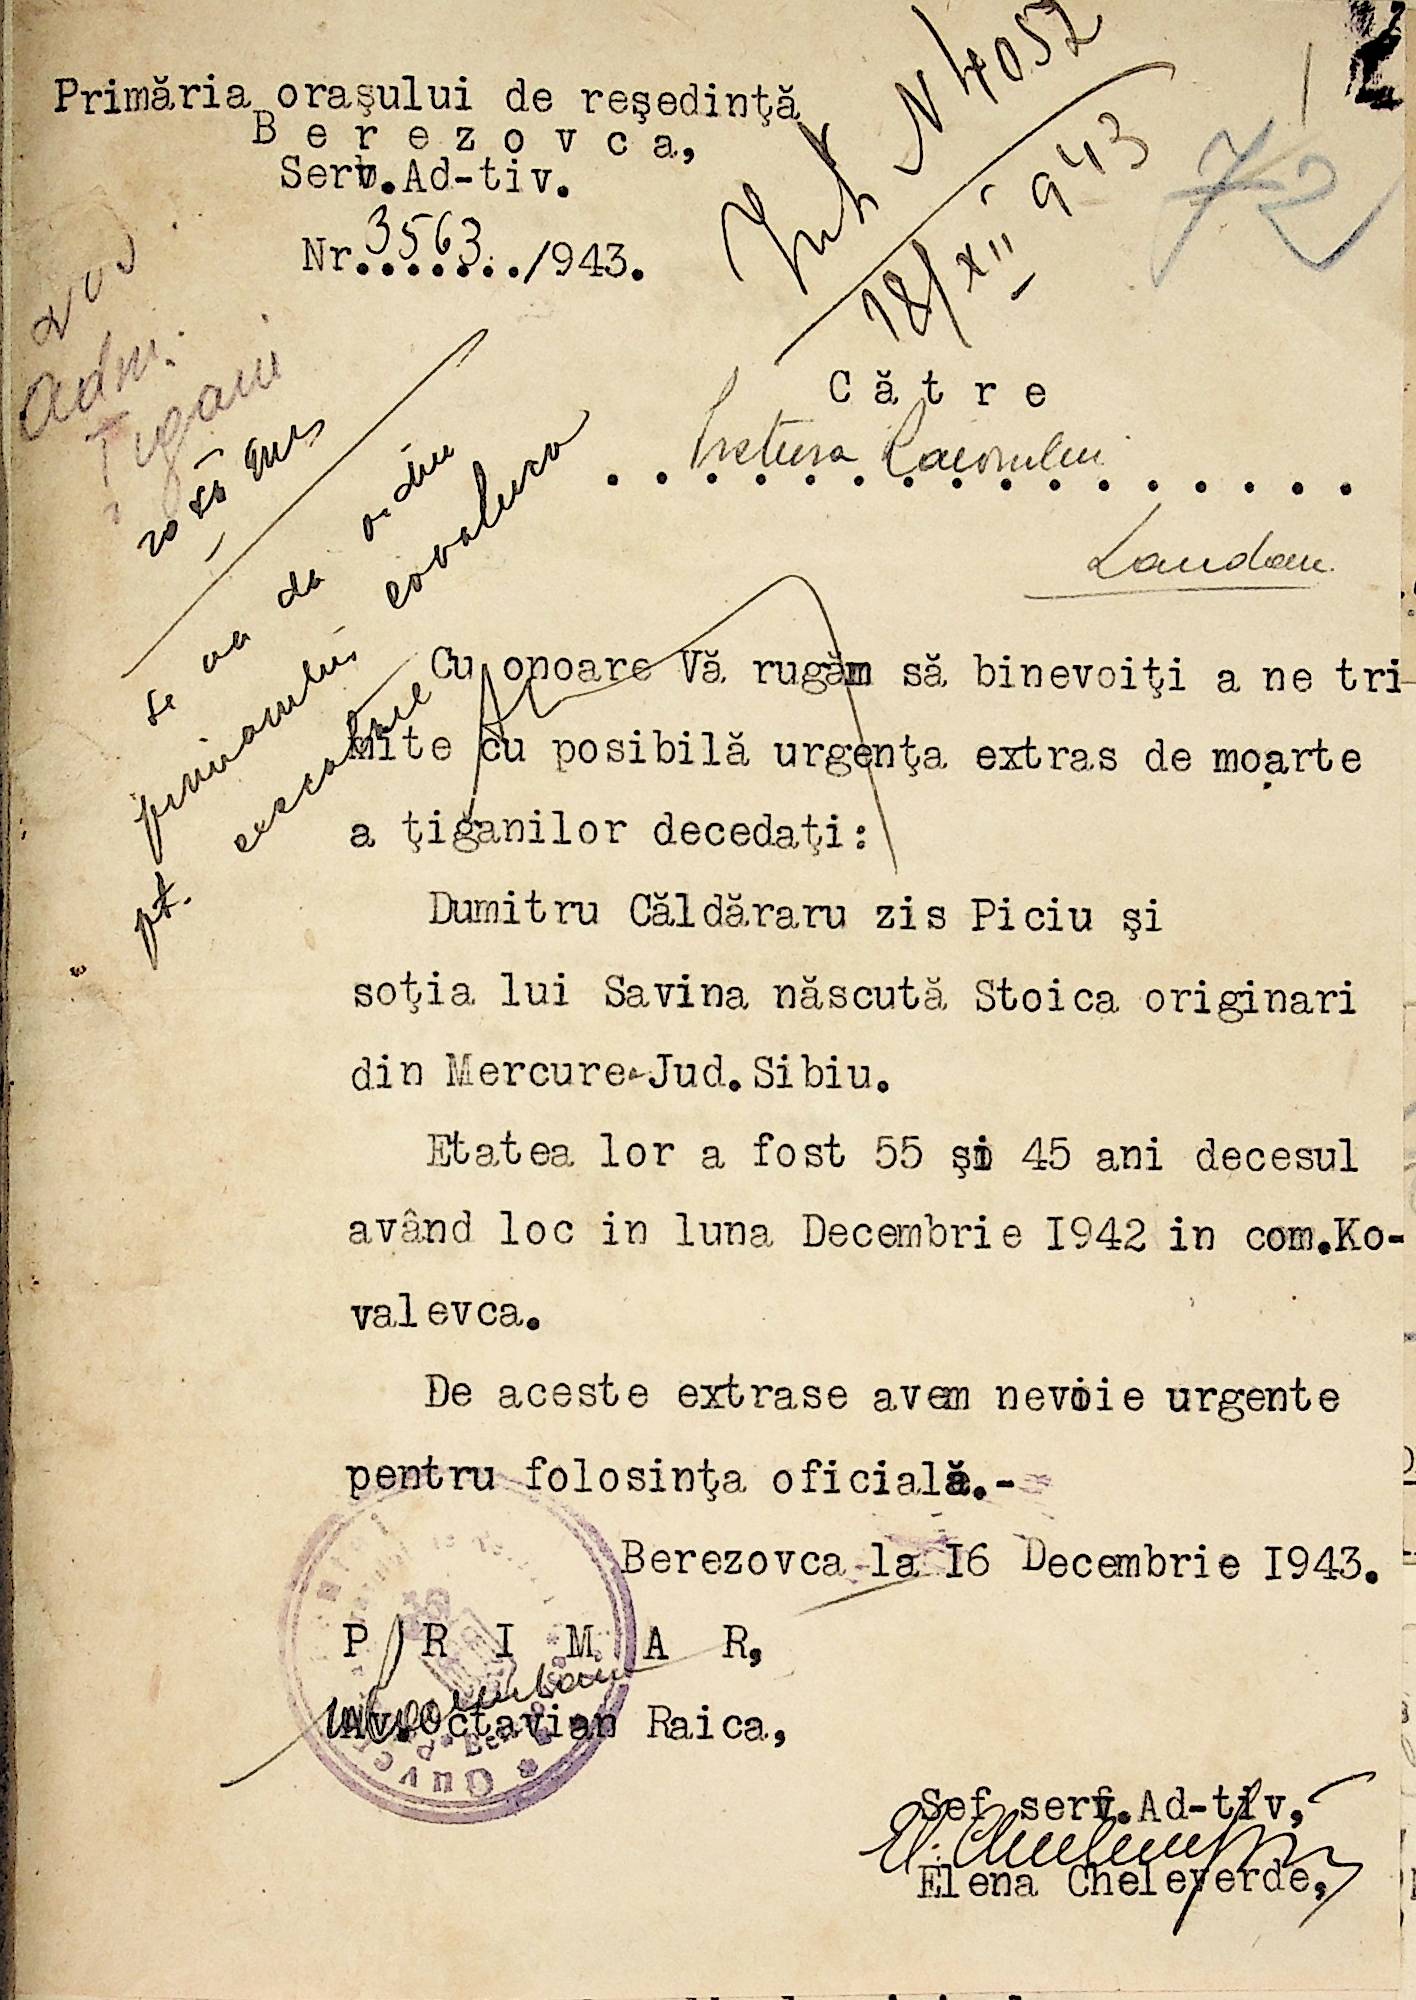 Primăria oraşului de reşedinţă
B e r e z o v c a,
Serv.Ad-tiv.
Nr. 3563 /943.
N 4052
18/XII 943
72
Adm.
Ţigani
20 XII 943
C ă t r e
Pretura Raionului
Landau
se va da ordin
primarului Covaleuca
pt. executare
Cu onoare Vă rugăm să binevoiţi a ne tri
mite cu posibilă urgenţa extras de moarte
a ţiganilor decedaţi:
Dumitru Căldăraru zis Piciu şi
soţia lui Savina născută Stoica originari
din Mercure-Jud.Sibiu.
Etatea lor a fost 55 şi 45 ani decesul
având loc in luna Decembrie I942 in com.Ko-
valevca.
De aceste extrase avem nevoie urgente
pentru folosinţa oficială.-
Berezovca la I6 Decembrie I943.
P R I M A R,
Av.Octavian Raica,
Guver
Şef serv.Ad-tiv,
Elena Cheleverde,